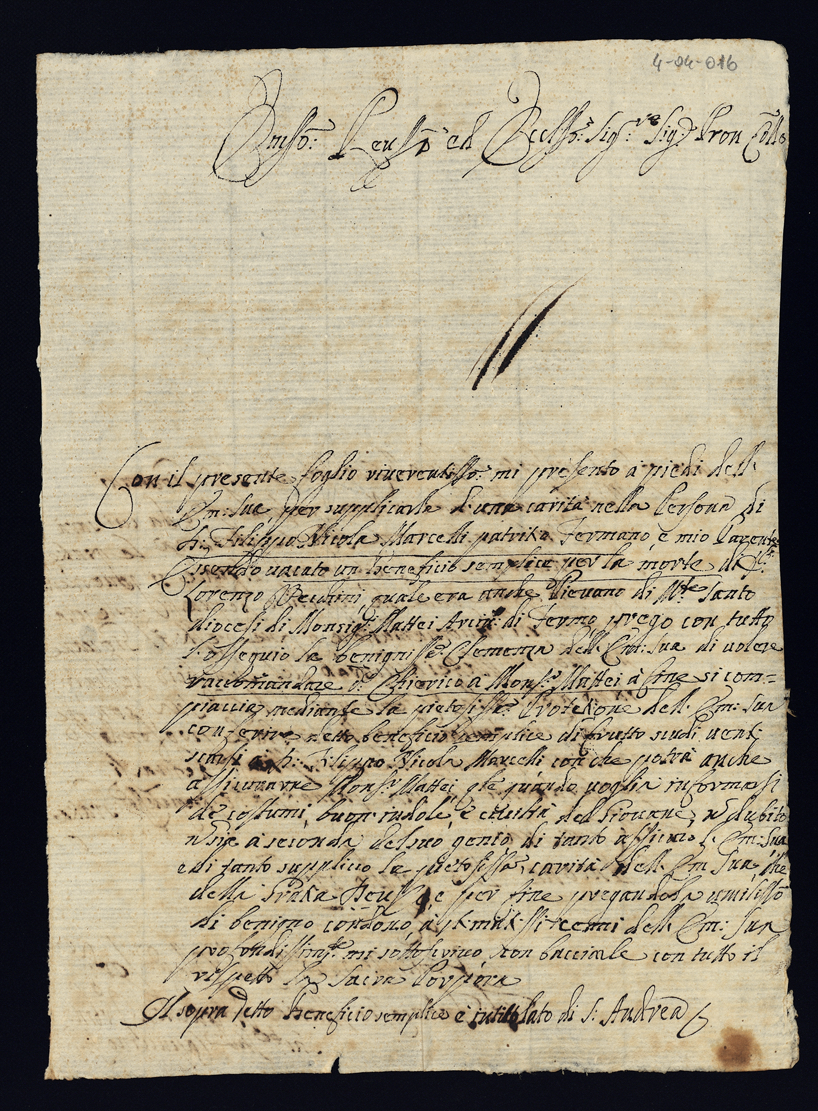 4-04-016
Emsso: Reusso ed Eccsso: Sigr: Sigr Pron Collo
Con il presente foglio riverentisso: mi presento a piedi dell:
Em: Sua per supplicarla d'una carità nella Persona di
h: Filippo Nicola Marcelli patritio Fermano, e mio Parente
essendo vacato un beneficio semplice per la morte di
Lorenzo quale era anche Pievano di Mte Santo
diocesi di Monsigr: Mattei Arciv: di Fermo, prego con tutto
l'ossequio la benignissa: Clemenza dell: Em: Sua di volere
raccomandare d: Chierico a Monsr: Mattei a fine si com=
piaccia mediante la pietosissa: Protezione dell: Em: Sua
conferire detto beneficio semplice di frutto scudi venti
scarsi a h: Filippo Nicola Marcelli con che potrà anche
assicurarre Monsr: Mattei, che quando voglia informarsi
de costumi, buon indole, e civiltà del Giovane, n dubito
n sia a seconda del suo genio, di tanto assicuro l: Em: Sua
e di tanto supplico la pietosissa: carità dell: Em: Sua, che
della e per fine pregandola umilisso
di benigno condono, a dell: Em: Sua
profondissimte: mi sottoscrivo, con bacciarle con tutto il
rispetto la Sacra Porpora
Il sopra detto beneficio semplice è intitolato di S: Andrea